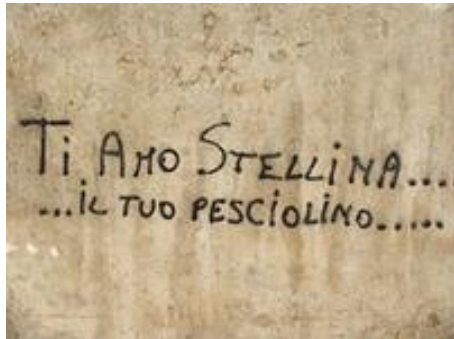 Ti AMO STELLiNA....
...iL TUO PESCiOLiNO.....